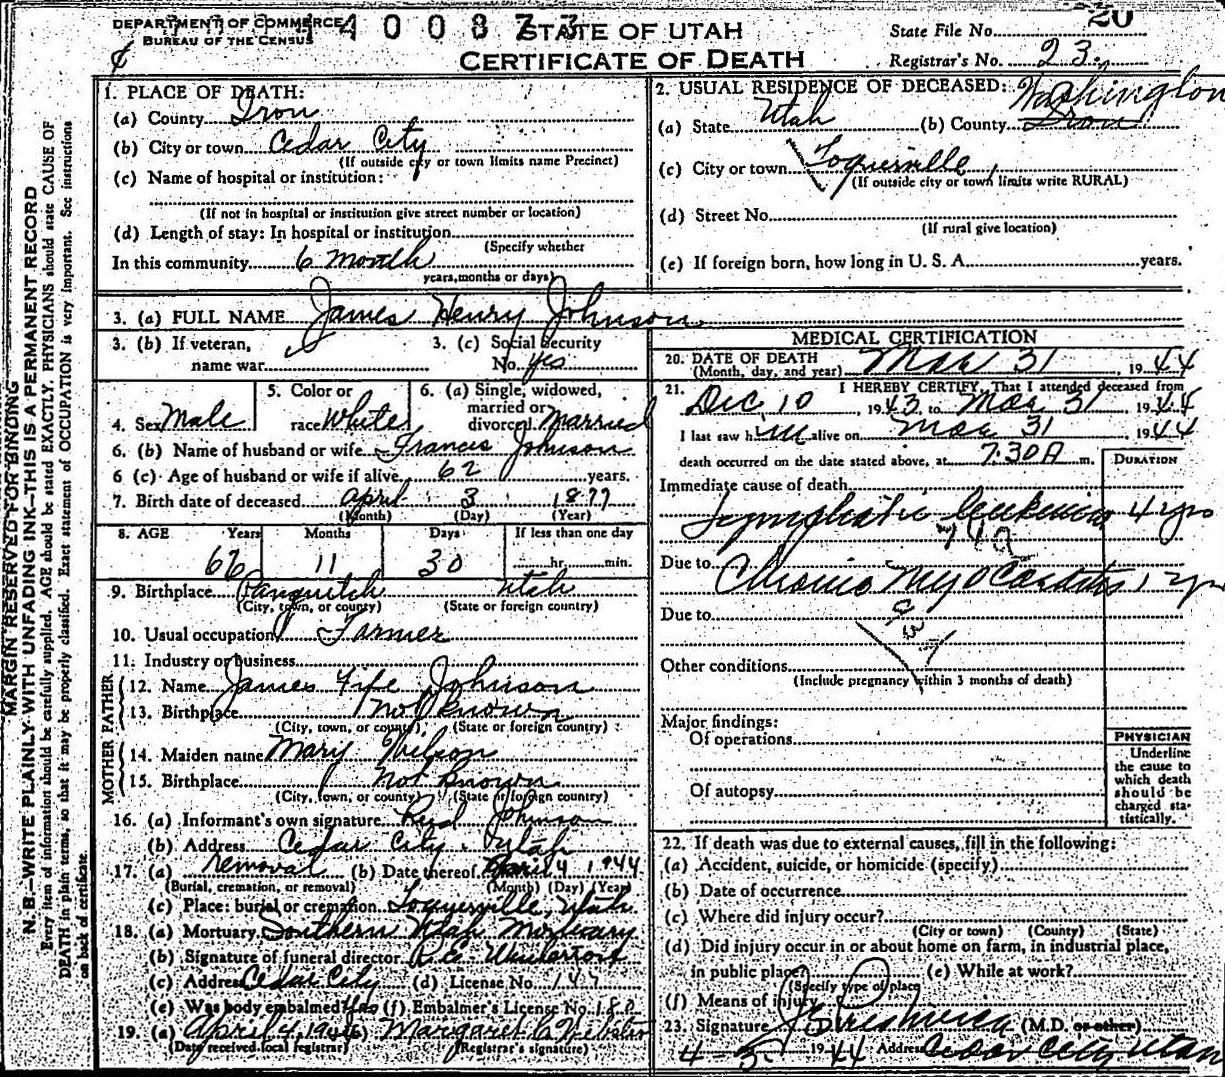 DEPARTMENT OF COMMERCE
BUREAU OF THE CENSUS
4 0 0 8 7 3
STATE OF UTAH
CERTIFICATE OF DEATH
20
State File No.
Registrar's No. 23
MARGIN RESERVED FOR BINDING
N. B.—WRITE PLAINLY WITH UNFADING INK—THIS IS A PERMANENT RECORD
Every item of information should be carefully supplied. AGE should be stated EXACTLY. PHYSICIANS should state CAUSE OF
DEATH in plain terms, so that it may be properly classified. Exact statement of OCCUPATION is very important. See instructions
on back of certificate.
1. PLACE OF DEATH:
(a) County Iron
(b) City or town Cedar City
(If outside city or town limits name Precinct)
(c) Name of hospital or institution:
(If not in hospital or institution give street number or location)
(d) Length of stay: In hospital or institution
(Specify whether
In this community 6 month
years, months or days)
2. USUAL RESIDENCE OF DECEASED:
Washington
(a) State Utah (b) County Iron
(c) City or town Toquerville
(If outside city or town limits write RURAL)
(d) Street No.
(If rural give location)
(e) If foreign born, how long in U. S. A. years.
3. (a) FULL NAME James Henry Johnson
3. (b) If veteran, name war
3. (c) Social Security No. yes
4. Sex Male
5. Color or race White
6. (a) Single, widowed, married or divorced Married
6. (b) Name of husband or wife Frances Johnson
6 (c) Age of husband or wife if alive 62 years.
7. Birth date of deceased April 3 1877
(Month) (Day) (Year)
8. AGE Years Months Days If less than one day
66 11 30 hr. min.
9. Birthplace Panguitch Utah
(City, town, or county) (State or foreign country)
10. Usual occupation Farmer
11. Industry or business
FATHER
12. Name James Fife Johnson
13. Birthplace not known
(City, town, or county) (State or foreign country)
MOTHER
14. Maiden name Mary Wilson
15. Birthplace not known
(City, town, or county) (State or foreign country)
16. (a) Informant's own signature Johnson
(b) Address Cedar City Utah
17. (a) removal (b) Date thereof April 4 1944
(Burial, cremation, or removal) (Month) (Day) (Year)
(c) Place: burial or cremation Toquerville, Utah
18. (a) Mortuary Southern Utah Mortuary
(b) Signature of funeral director
(c) Address Cedar City (d) License No. 147
(e) Was body embalmed Yes (f) Embalmer's License No. 180
19. (a) April 4, 1944 (b) Margaret
(Date received local registrar) (Registrar's signature)
MEDICAL CERTIFICATION
20. DATE OF DEATH
(Month, day, and year) Mar 31, 1944
21. I HEREBY CERTIFY, That I attended deceased from
Dec 10, 1943, to Mar 31 1944
I last saw him alive on Mar 31 1944
death occurred on the date stated above, at 7:30 A m.
DURATION
Immediate cause of death
Lymphatic leukemia 4 yrs
74a
Due to Chronic Myocarditis 1 yr
Due to
Other conditions
(Include pregnancy within 3 months of death)
Major findings:
Of operations
Of autopsy
PHYSICIAN
Underline
the cause to
which death
should be
charged sta-
tistically.
22. If death was due to external causes, fill in the following:
(a) Accident, suicide, or homicide (specify)
(b) Date of occurrence
(c) Where did injury occur?
(City or town) (County) (State)
(d) Did injury occur in or about home on farm, in industrial place,
in public place? (e) While at work?
(Specify type of place
(f) Means of injury
23. Signature (M.D. or other)
4-5, 1944 Address Cedar City Utah